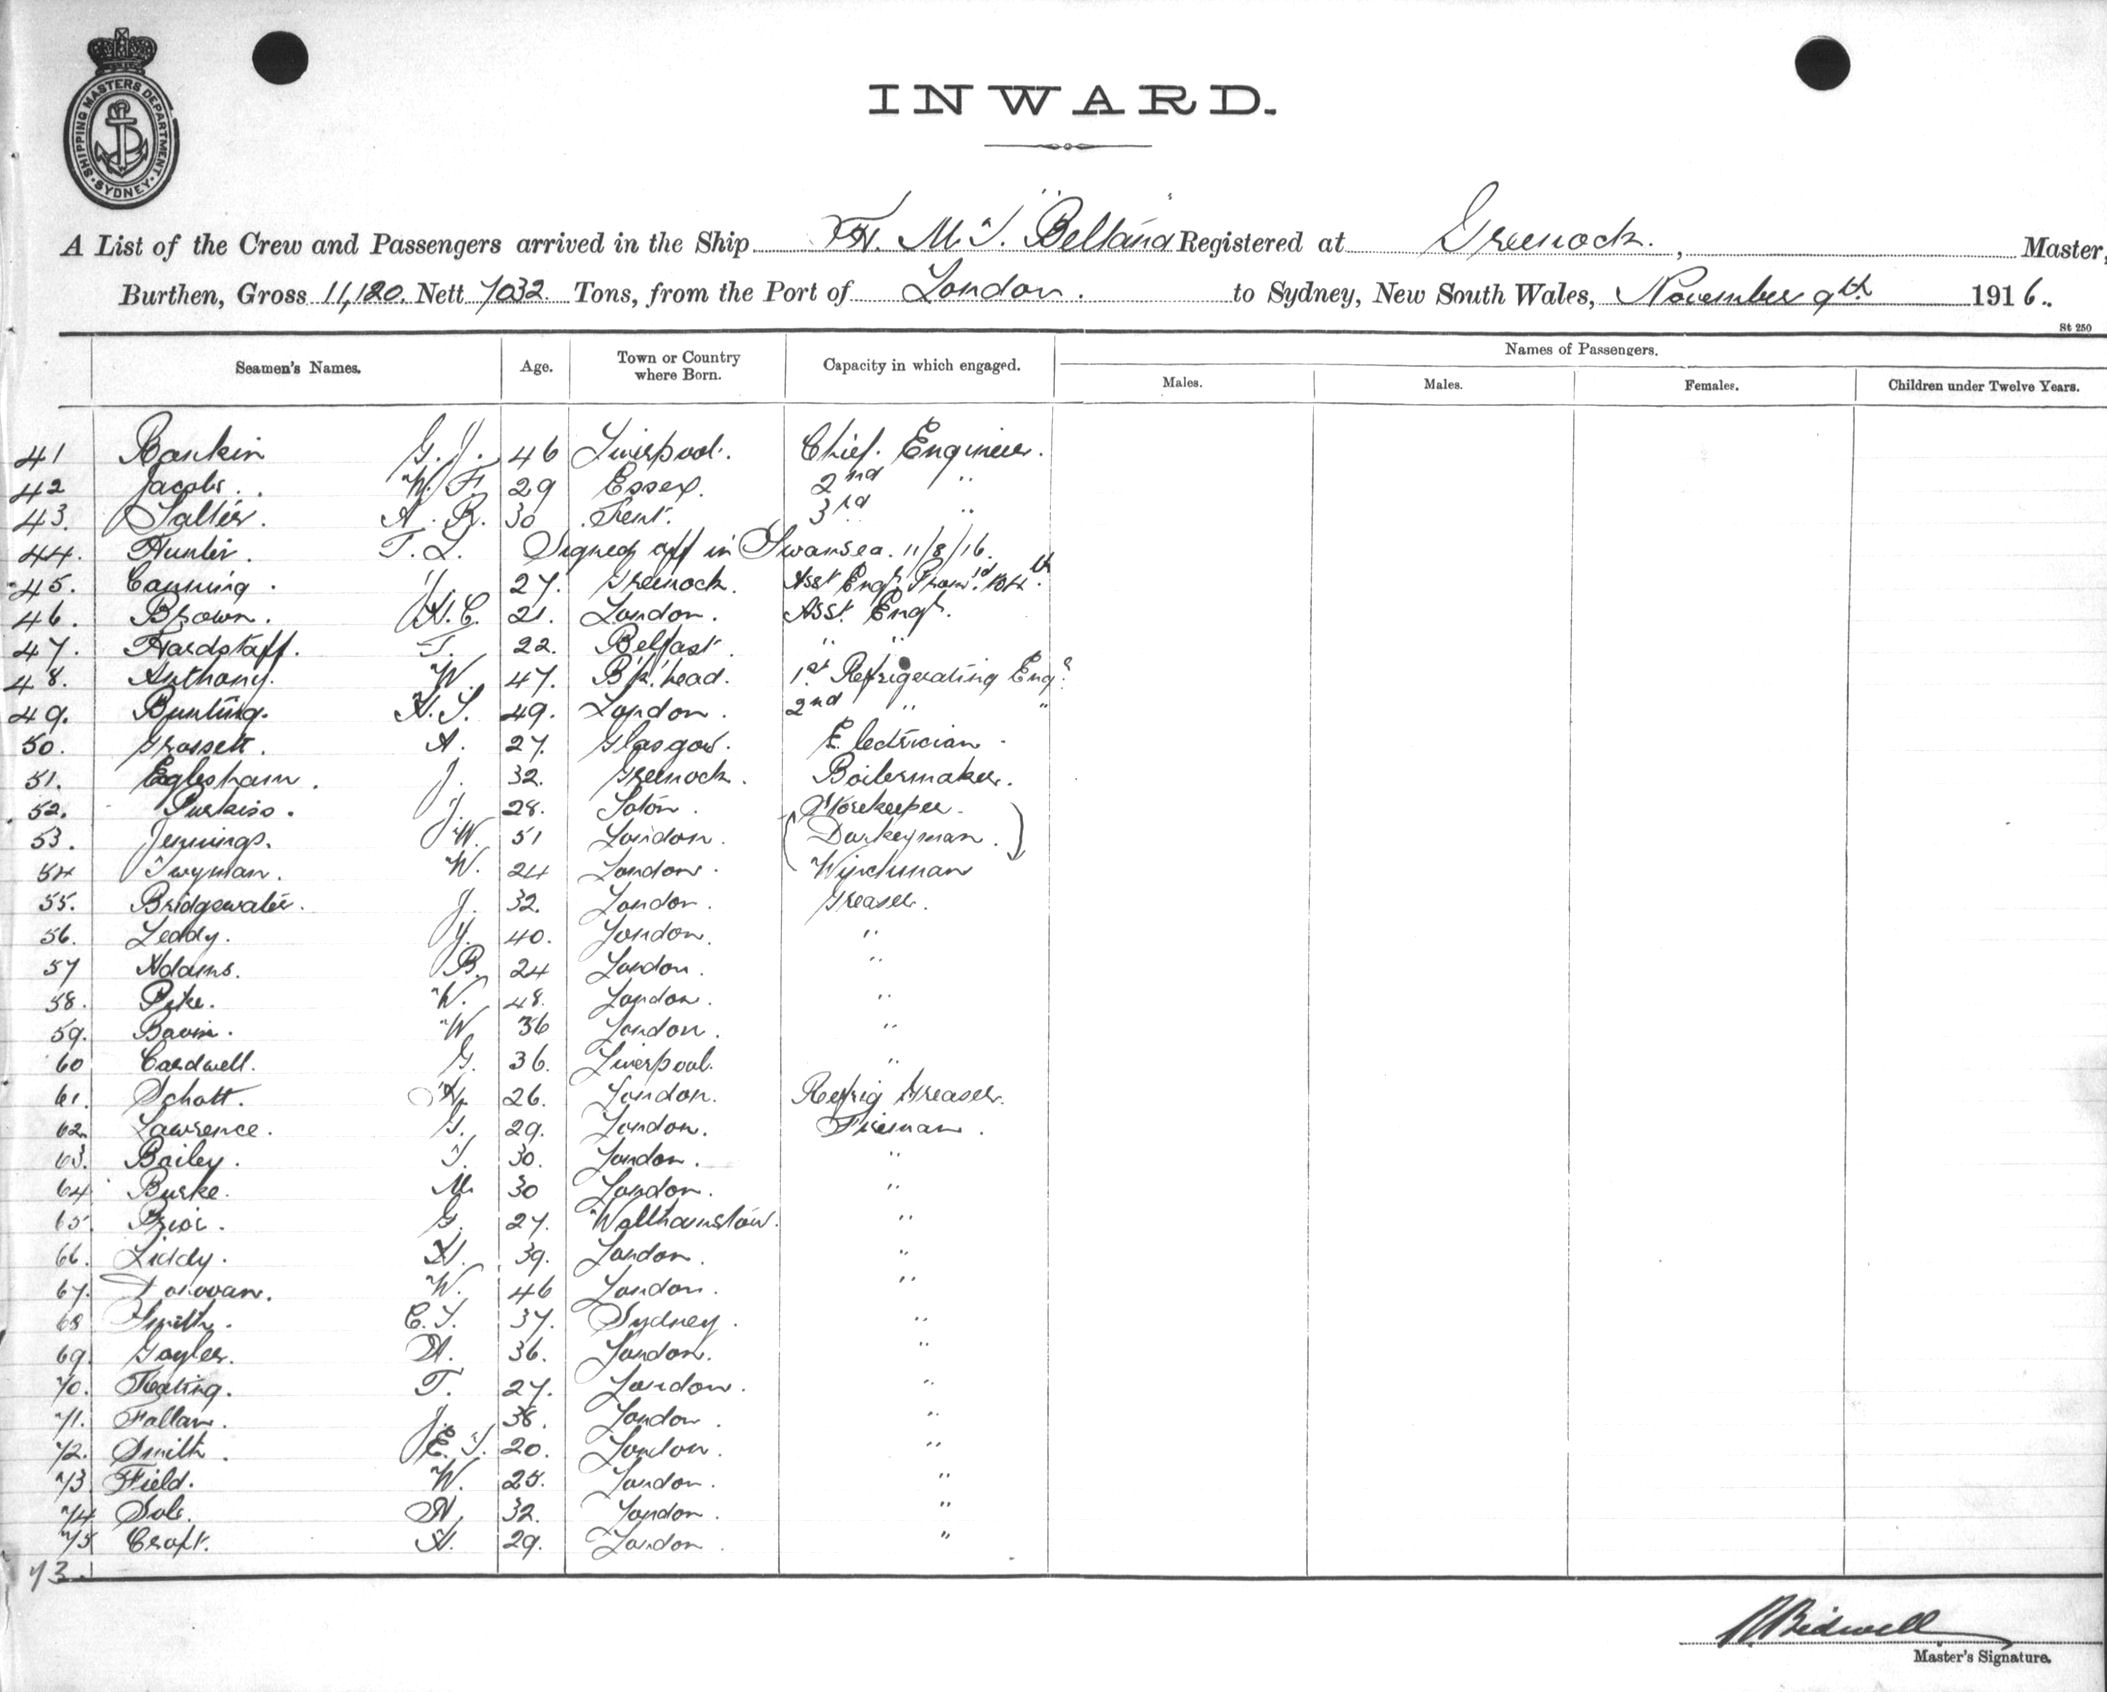 SHIPPING MASTERS DEPARTMENT · SYDNEY ·
INWARD.
A List of the Crew and Passengers arrived in the Ship H. M. T. "Beltana" Registered at Greenock. , Master,
Burthen, Gross 11,120. Nett 7032 Tons, from the Port of London. to Sydney, New South Wales, November 9th 1916.
St 250
Seamen's Names. Age. Town or Country where Born. Capacity in which engaged. Names of Passengers.
Males. Males. Females. Children under Twelve Years.
41 Rankin G. J. 46 Liverpool. Chief. Engineer.
42 Jacobs. W. F. 29 Essex. 2nd "
43. Salter. A. R. 30 Kent. 3rd "
44. Hunter. T. L. Signed off in Swansea. 11/8/16.
45. Canning. J. 27. Greenock. Asst Engr. 4th.
46. Brown. H. C. 21. London. Asst. Engr.
47. Hardstaff. T. 22. Belfast. " "
48. Anthony. W. 47. B'k'head. 1st Refrigerating Engr
49. Bunting. H. S. 49. London. 2nd " "
50. Grossett. A. 27. Glasgow. Electrician.
51. Eglesham. J. 32. Greenock. Boilermaker.
52. Purkiss. J. 28. Soton. Storekeeper.
53. Jennings. W. 51 London. (Donkeyman.)
54 Twyman. W. 24 London. Winchman
55. Bridgewater. J. 32. London. Greaser.
56. Leddy. J. 40. London. "
57 Adams. B. 24 London. "
58. Pike. W. 48. London. "
59. Bavin. W. 36 London. "
60 Cardwell. G. 36. Liverpool. "
61. Schott. H. 26. London. Refrig Greaser.
62. Lawrence. G. 29. London. Fireman.
63. Bailey. T. 30. London. "
64 Burke. M. 30 London. "
65. Prior. G. 27. Walthamstow. "
66. Liddy. H. 39. London. "
67. Donovan. W. 46 London. "
68 Smith. C. T. 37. Sydney. "
69. Gayler. H. 36. London. "
70. Keating. T. 27. London. "
71. Fallan. J. 38. London. "
72. Smith. E. T. 20. London. "
73 Field. W. 25. London. "
74 Sole. H. 32. London. "
75 Croft. H. 29. London. "
73.
Bidwell
Master's Signature.